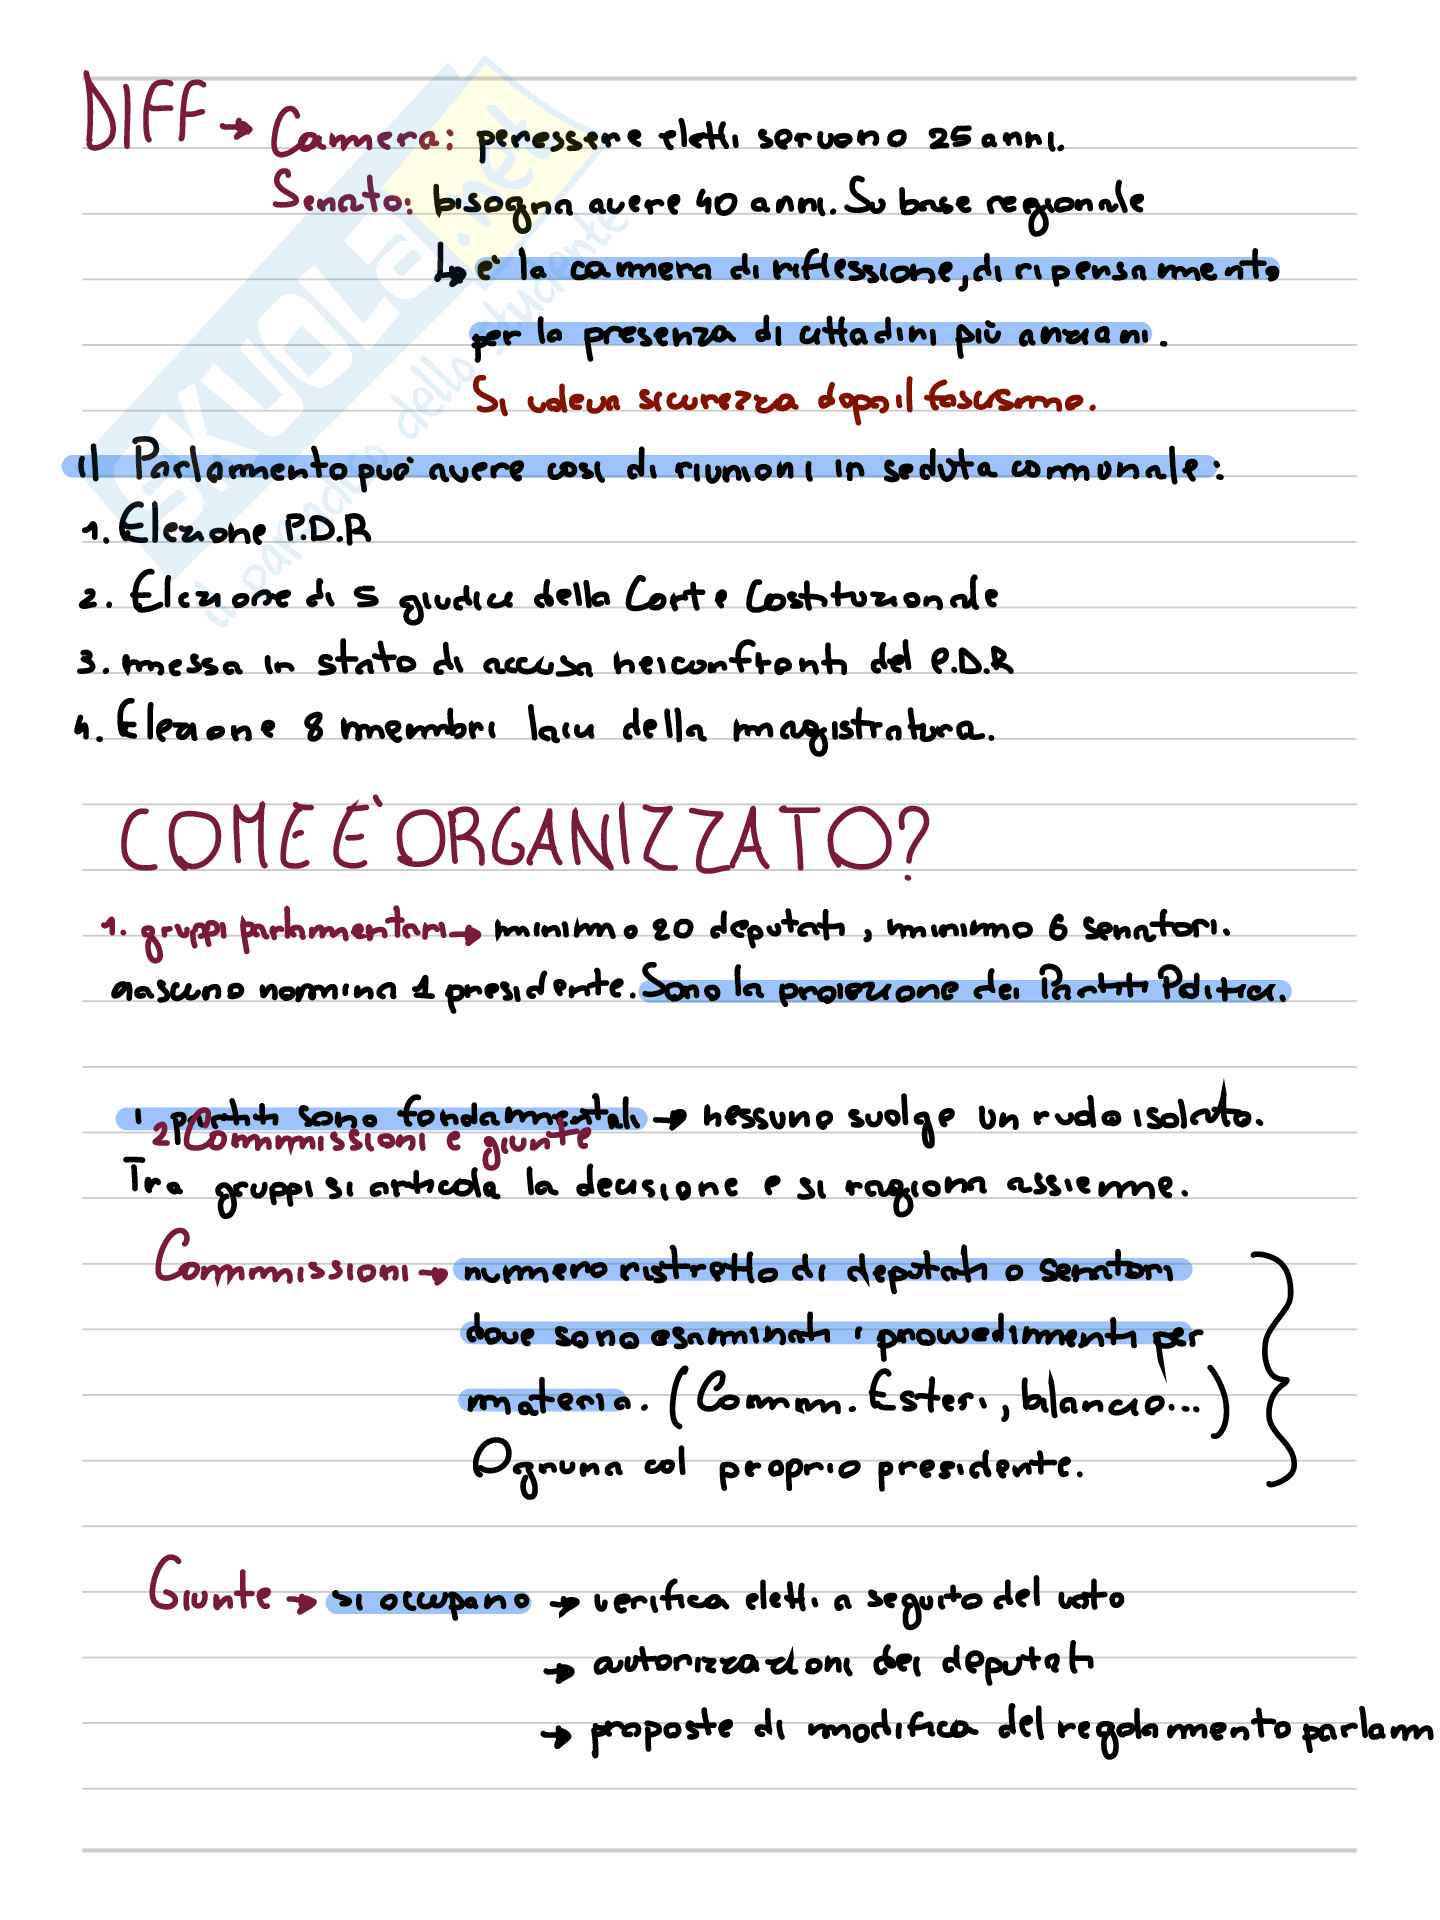 DIFF → Camera: per essere eletti servono 25 anni.
Senato: bisogna avere 40 anni. Su base regionale
↳ e' la camera di riflessione, di ripensamento
per la presenza di cittadini più anziani.
Si voleva sicurezza dopo il fascismo.
il Parlamento puo' avere così di riunioni in seduta comunale:
1. Elezione P.D.R
2. Elezione di 5 giudici della Corte Costituzionale
3. messa in stato di accusa nei confronti del P.D.R
4. Elezione 8 membri laici della magistratura.
COME E' ORGANIZZATO?
1. gruppi parlamentari → minimo 20 deputati, minimo 6 senatori.
ciascuno nomina 1 presidente. Sono la proiezione dei Partiti Politici.
i partiti sono fondamentali → nessuno svolge un ruolo isolato.
2 Commissioni e giunte
Tra gruppi si articola la decisione e si ragiona assieme.
Commissioni → numero ristretto di deputati o senatori
dove sono esaminati i provvedimenti per
materia. (Comm. Esteri, bilancio...)
Ognuna col proprio presidente.
Giunte → si occupano → verifica eletti a seguito del voto
→ autorizzazioni dei deputati
→ proposte di modifica del regolamento parlam
SKUOLA.net
il paradiso dello studente